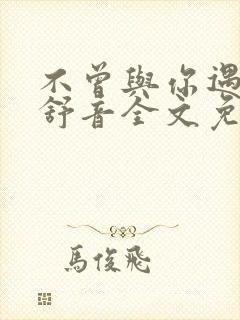 不曾與你遇
舒音全文免
馬俊飛